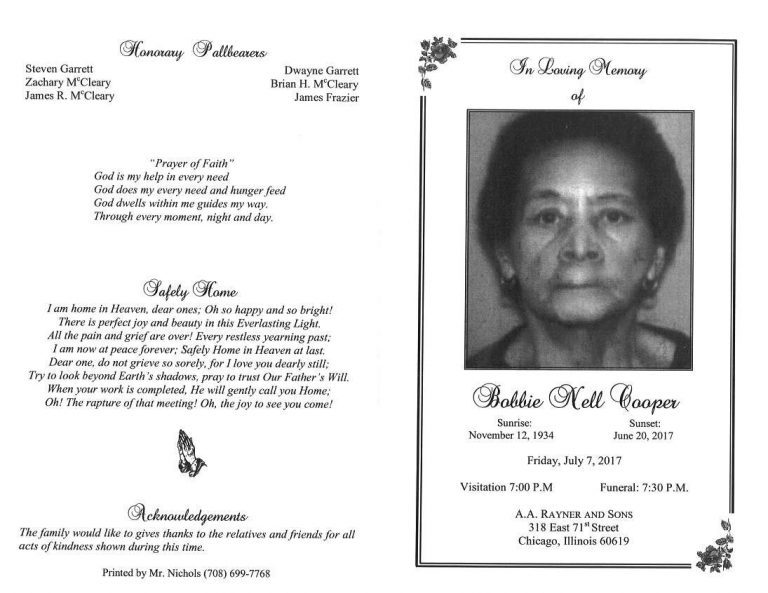 Honorary Pallbearers
Steven Garrett
Zachary McCleary
James R. McCleary
Dwayne Garrett
Brian H. McCleary
James Frazier
"Prayer of Faith"
God is my help in every need
God does my every need and hunger feed
God dwells within me guides my way.
Through every moment, night and day.
Safely Home
I am home in Heaven, dear ones; Oh so happy and so bright!
There is perfect joy and beauty in this Everlasting Light.
All the pain and grief are over! Every restless yearning past;
I am now at peace forever; Safely Home in Heaven at last.
Dear one, do not grieve so sorely, for I love you dearly still;
Try to look beyond Earth's shadows, pray to trust Our Father's Will.
When your work is completed, He will gently call you Home;
Oh! The rapture of that meeting! Oh, the joy to see you come!
Acknowledgements
The family would like to gives thanks to the relatives and friends for all
acts of kindness shown during this time.
Printed by Mr. Nichols (708) 699-7768
In Loving Memory
of
Bobbie Nell Cooper
Sunrise:
November 12, 1934
Sunset:
June 20, 2017
Friday, July 7, 2017
Visitation 7:00 P.M Funeral: 7:30 P.M.
A.A. RAYNER AND SONS
318 East 71st Street
Chicago, Illinois 60619